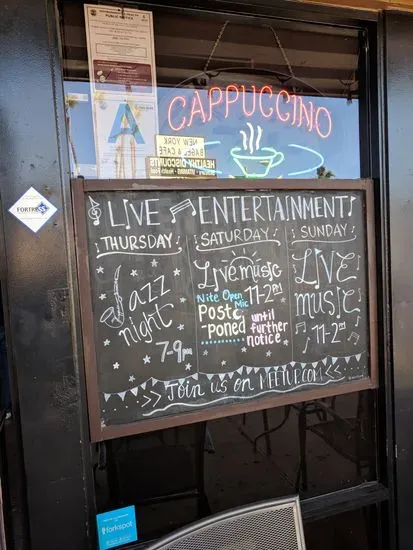 CAPPUCCINO
NEW YORK
BAGEL & CAFE
HEALTHY DISCOUNTS
A
FORTRESS
LIVE ENTERTAINMENT
THURSDAY
Jazz
night
7-9pm
SATURDAY
Live music
11-2pm
Nite Open
Mic
Post
-poned
until
further
notice
SUNDAY
LIVE
music
11-2pm
>> Join us on MEETUP.com <<
forkspot